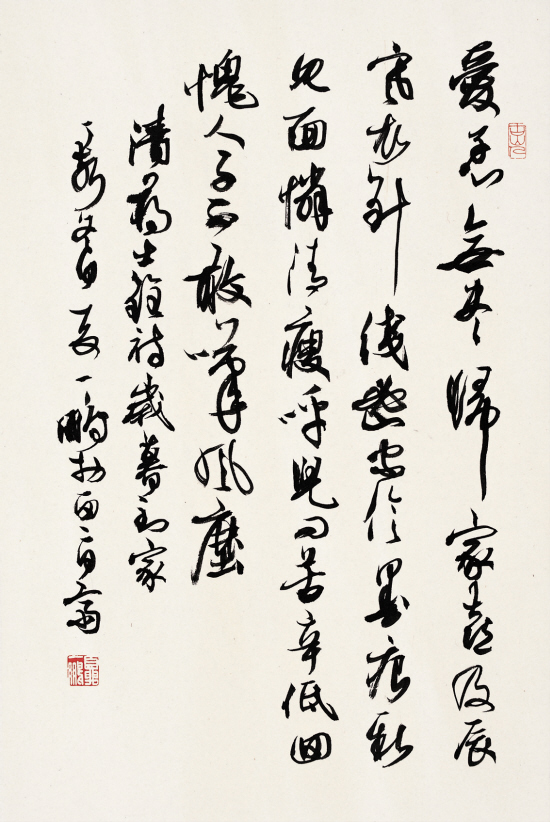 愛子心無盡歸家喜及辰
寒衣針綫密家信墨痕新
見面憐清瘦呼兒問苦辛低囬
愧人子不敢嘆風塵
清蔣士銓詩歲暮到家
丁冬日夏一鵬於齋